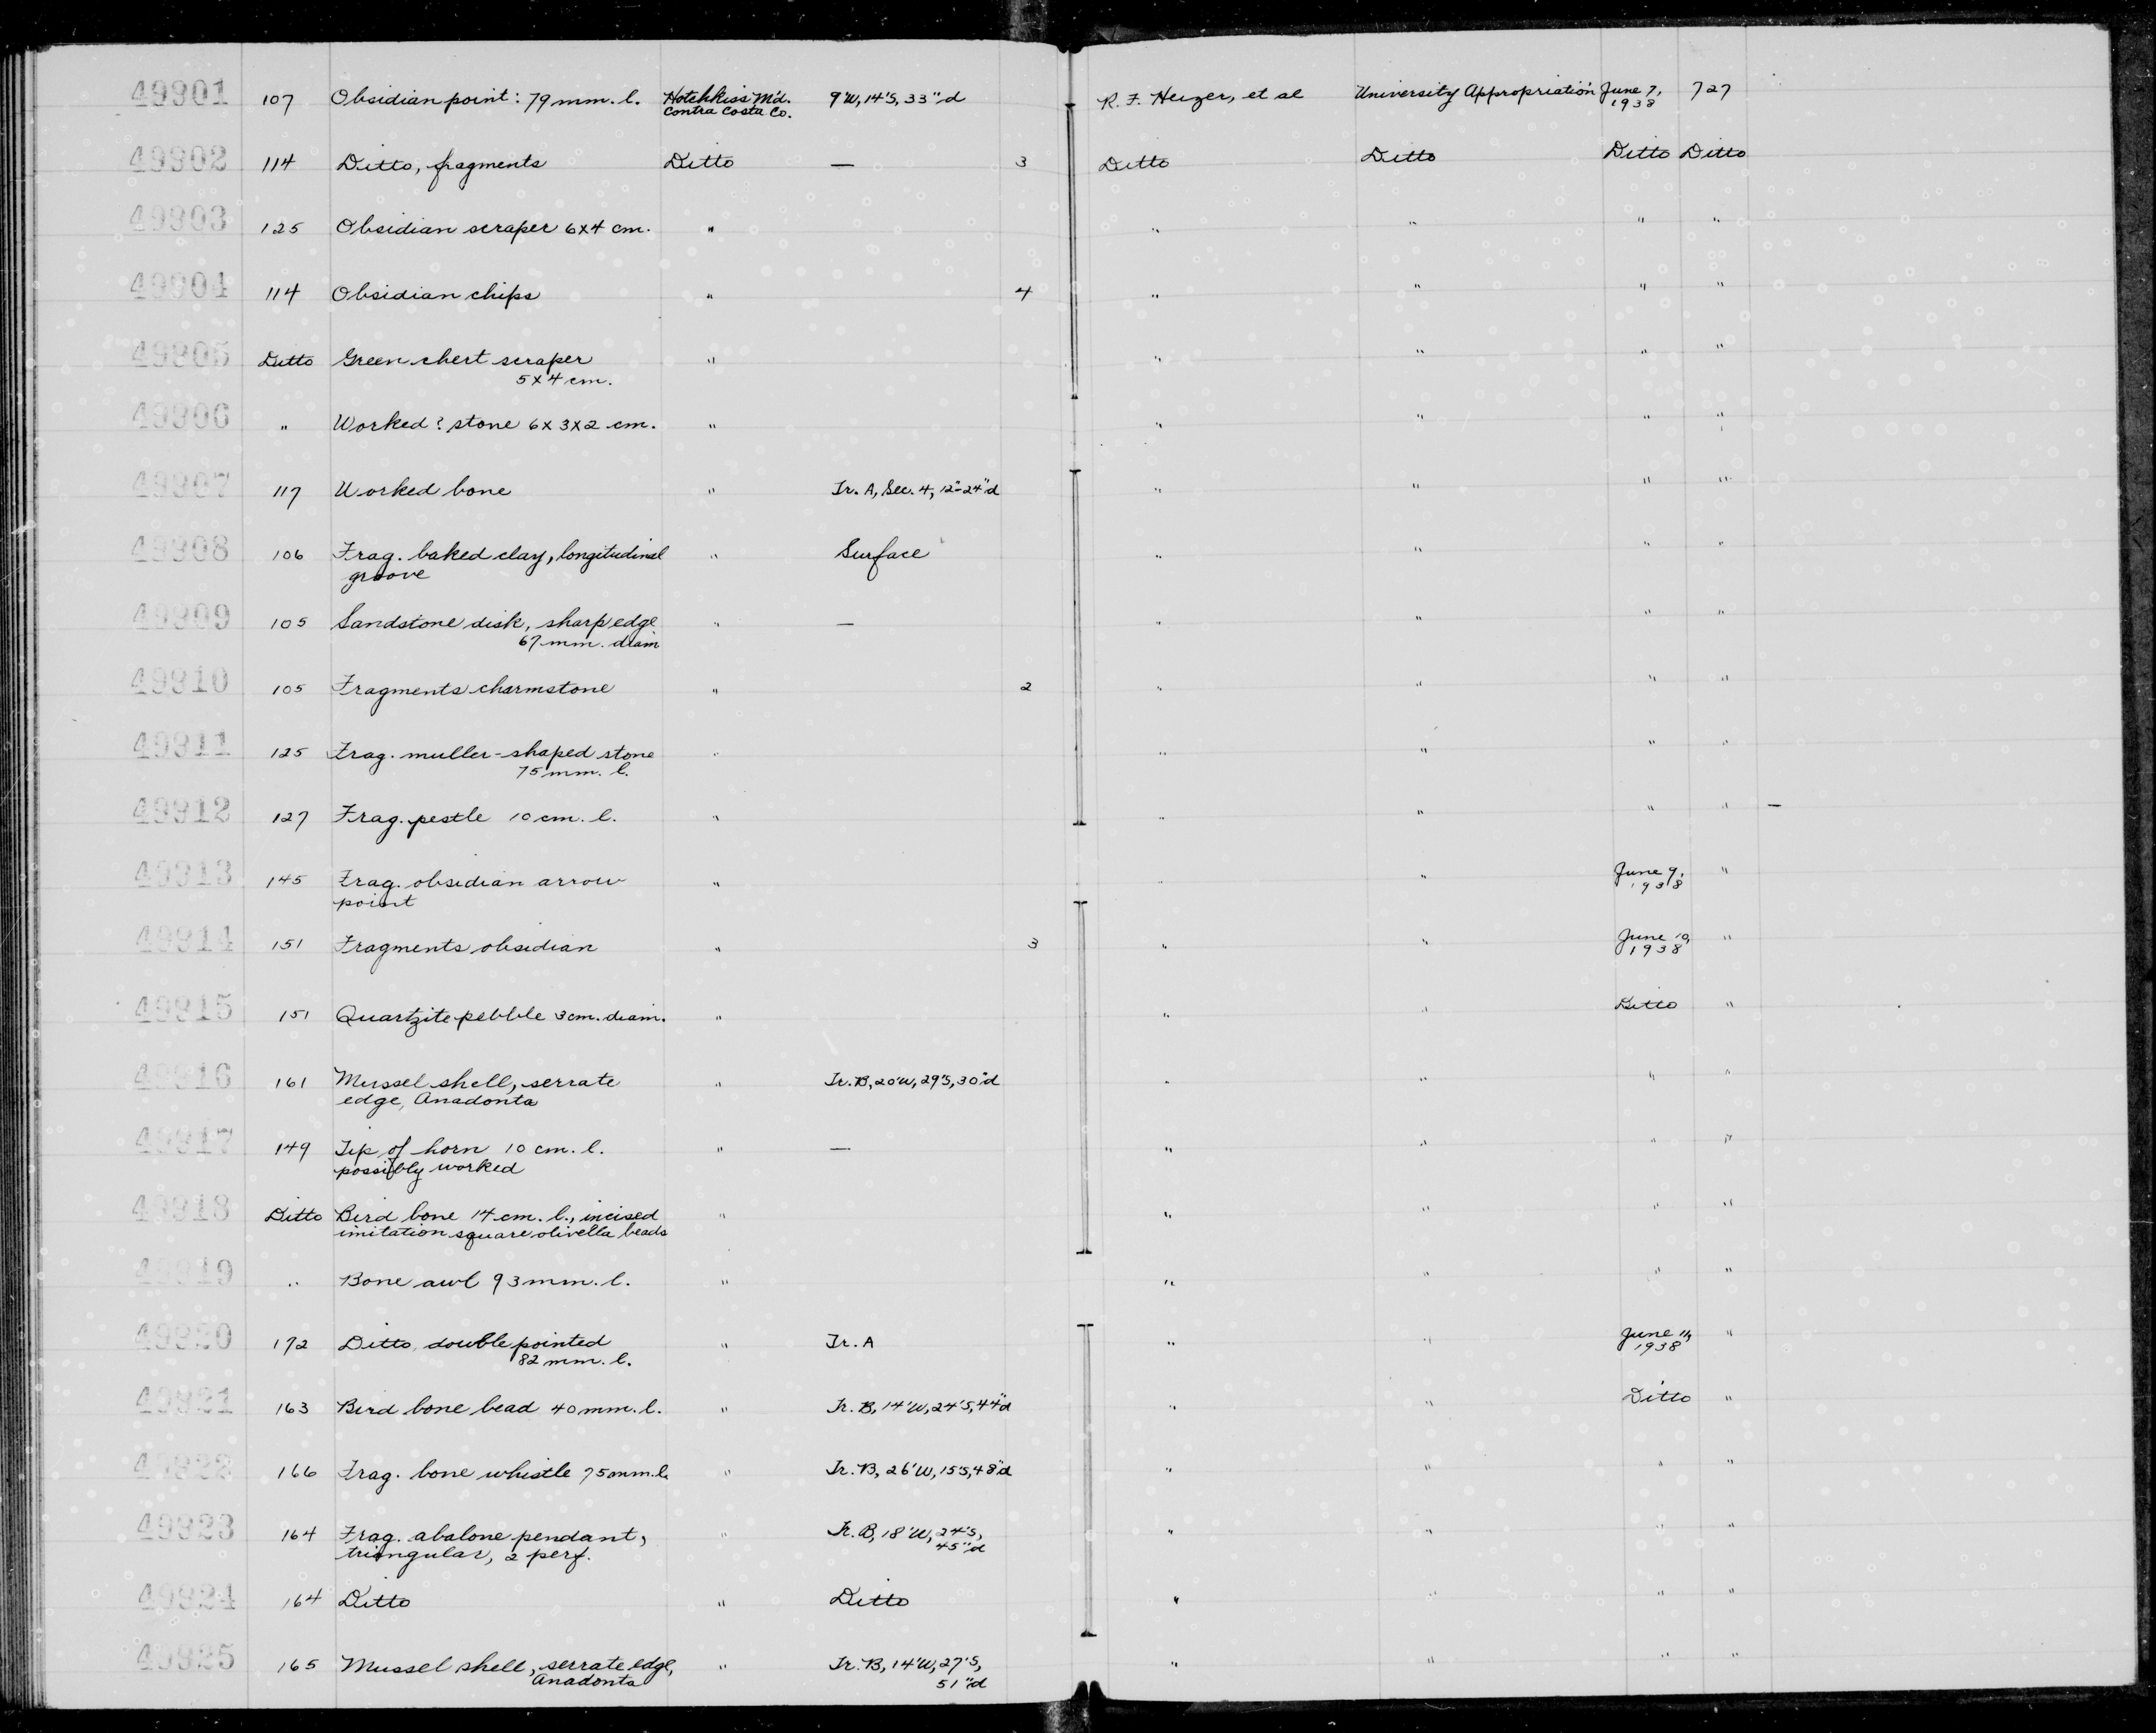 49901 107 Obsidian point: 79 mm. l. Hotchkiss M'd. Contra Costa Co. 9'W, 14'S, 33"d R. F. Heizer, et al University Appropriation June 7, 1938 727
49902 114 Ditto, fragments Ditto — 3 Ditto Ditto Ditto Ditto
49903 125 Obsidian scraper 6x4 cm. " " " " "
49904 114 Obsidian chips " 4 " " " "
49905 Ditto Green chert scraper 5x4 cm. " " " " "
49906 " Worked? stone 6x3x2 cm. " " " " "
49907 117 Worked bone " Tr. A, Sec. 4, 12"-24"d " " " "
49908 106 Frag. baked clay, longitudinal groove " Surface " " " "
49909 105 Sandstone disk, sharp edge 67 mm. diam " — " " " "
49910 105 Fragments charmstone " 2 " " " "
49911 125 Frag. muller-shaped stone 75 mm. l. " " " " "
49912 127 Frag. pestle 10 cm. l. " " " " " —
49913 145 Frag. obsidian arrow point " " " June 9, 1938 "
49914 151 Fragments obsidian " 3 " " June 10, 1938 "
49915 151 Quartzite pebble 3cm. diam. " " " Ditto "
49916 161 Mussel shell, serrate edge, Anadonta " Tr. B, 20'W, 29'S, 30"d " " " "
49917 149 Tip of horn 10 cm. l. possibly worked " — " " " "
49918 Ditto Bird bone 14 cm. l., incised imitation square olivella beads " " " " "
49919 " Bone awl 93 mm. l. " " " " "
49920 172 Ditto, double pointed 82 mm. l. " Tr. A " " June 11, 1938 "
49921 163 Bird bone bead 40 mm. l. " Tr. B, 14'W, 24'S, 44"d " " Ditto "
49922 166 Frag. bone whistle 75mm. l. " Tr. B, 26'W, 15'S, 48"d " " " "
49923 164 Frag. abalone pendant, triangular, 2 perf. " Tr. B, 18'W, 24'S, 45"d " " " "
49924 164 Ditto " Ditto " " " "
49925 165 Mussel shell, serrate edge, Anadonta " Tr. B, 14'W, 27'S, 51"d " " " "